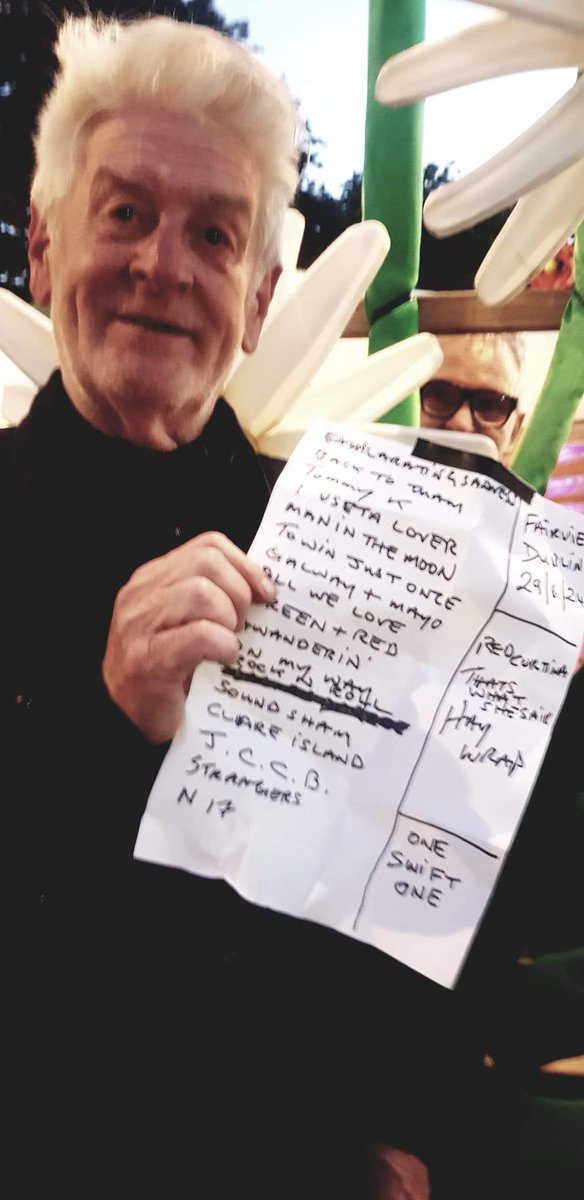 EXHILARATING SADNESS
BACK TO THAM
TOMMY K
I USETA LOVER
MAN IN THE MOON
TO WIN JUST ONCE
GALWAY + MAYO
ALL WE LOVE
GREEN + RED
WANDERIN'
ON MY WAY
SOUND SHAM
CLARE ISLAND
J.C.C.B.
STRANGERS
N 17
FAIRVIE
DUBLIN
29/6/24
RED CORTINA
THATS
WHAT
SHE SAID
HAY
WRAP
ONE
SWIFT
ONE